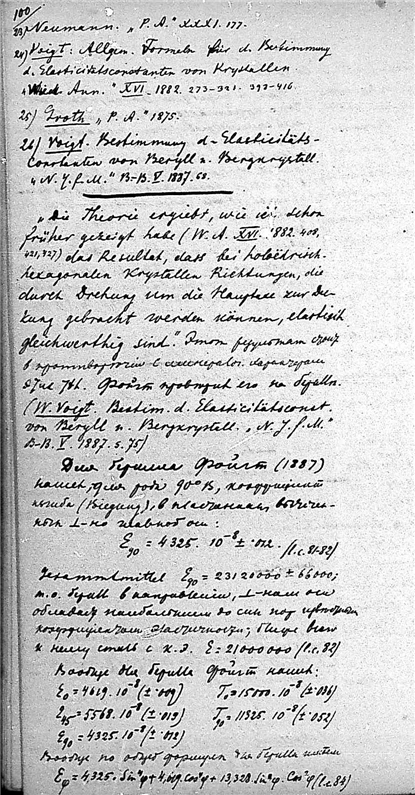 100
23) Neumann. „P. A." XXXI. 177.
24) Voigt: Allgem. Formeln für d. Bestimmung
d. Elasticitätsconstanten von Krystallen
„Wied. Ann." XVI. 1882. 273-321. 393-416.
25) Groth „P. A." 1875.
26) Voigt. Bestimmung d. Elasticitäts-
constanten von Beryll u. Bergkrystall.
„N. J. f. M." B-B. V. 1887. 68.
„Die Theorie ergiebt, wie ich schon
früher gezeigt habe (W. A. XVI. 1882. 408,
421, 427) das Resultat, dass bei holoëdrisch-
hexagonalen Krystallen Richtungen, die
durch Drehung um die Hauptaxe zur Dec-
kung gebracht werden können, elastisch
gleichwerthig sind". Этот результат стоит
в противоречии с
Фойгт на берилле.
(W. Voigt. Bestim. d. Elasticitätsconst.
von Beryll u. Bergkrystall. „N. J. f. M."
B-B. V 1887. S. 75)
Для берилла Фойгт (1887)
нашел, для 90° B, коэффициент
изгиба (Biegung), в пластинках,
⊥-но главной оси:
E90 = 4325. 10⁻⁸ ± .012. (l.c. 81-82)
Gesammtmittel E90 = 23120000 ± 66000;
т.о. берилл в направлении, ⊥-ном оси
обладает наибольшим до сих пор
коэффициентом эластичности; ближе всего
к нему сталь с к.э. E = 21000000 (l.c. 82)
Вообще для берилла Фойгт нашел:
E0 = 4619. 10⁻⁸ (± .009) T0 = 15000. 10⁻⁸ (± .036)
E45 = 5568. 10⁻⁸ (± .013) T90 = 11325. 10⁻⁸ (± .052)
E90 = 4325. 10⁻⁸ (± .012)
Вообще по общей формуле для берилла имеем
Eφ = 4,325. Sin⁴φ + 4,619. Cos⁴φ + 13,328 Sin²φ. Cos²φ (l.c. 83)